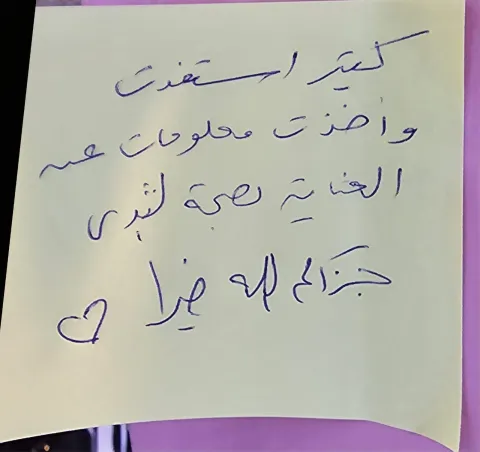 كتير استفدت
وأخذت معلومات عن
العناية بصحة الثدي
جزاكم الله خيرا ♡